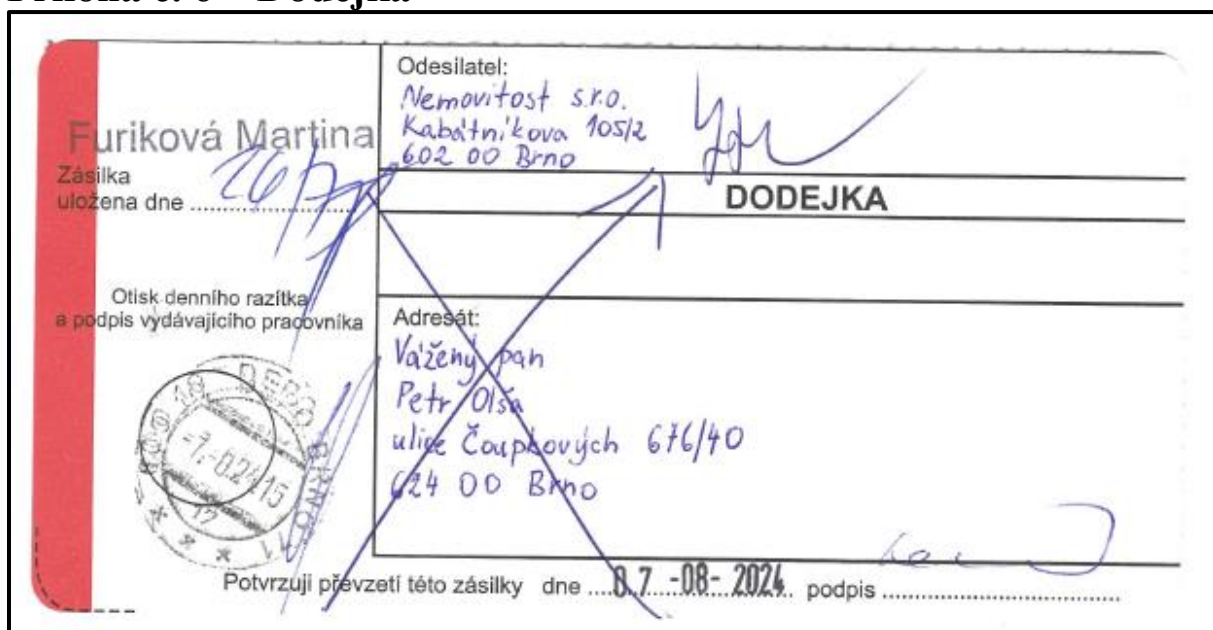 Příloha č. 6 – Dodejka
Odesilatel:
Nemovitost s.r.o.
Kabátníkova 105/2
602 00 Brno
Furiková Martina
Zásilka
uložena dne 26/7
DODEJKA
Otisk denního razítka
a podpis vydávajícího pracovníka
DEPO BRNO
Adresát:
Vážený pan
Petr Olša
ulice Čoupkových 676/40
624 00 Brno
Potvrzuji převzetí této zásilky dne 07 -08- 2024 podpis